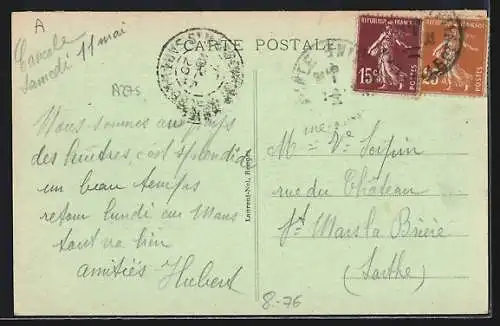 A
Cancale
Samedi 11 mai
CARTE POSTALE
REPUBLIQUE FRANÇAISE
15c POSTES
REPUBLIQUE FRANÇAISE
POSTES
Nous sommes au pays
des huîtres, c'est splendide
un beau temps
retour lundi au Mans
tout va bien
amitiés Hubert
Laurent-Nel, Rennes
Mme Vve
rue du Château
St Mars la Brière
(Sarthe)
8-76